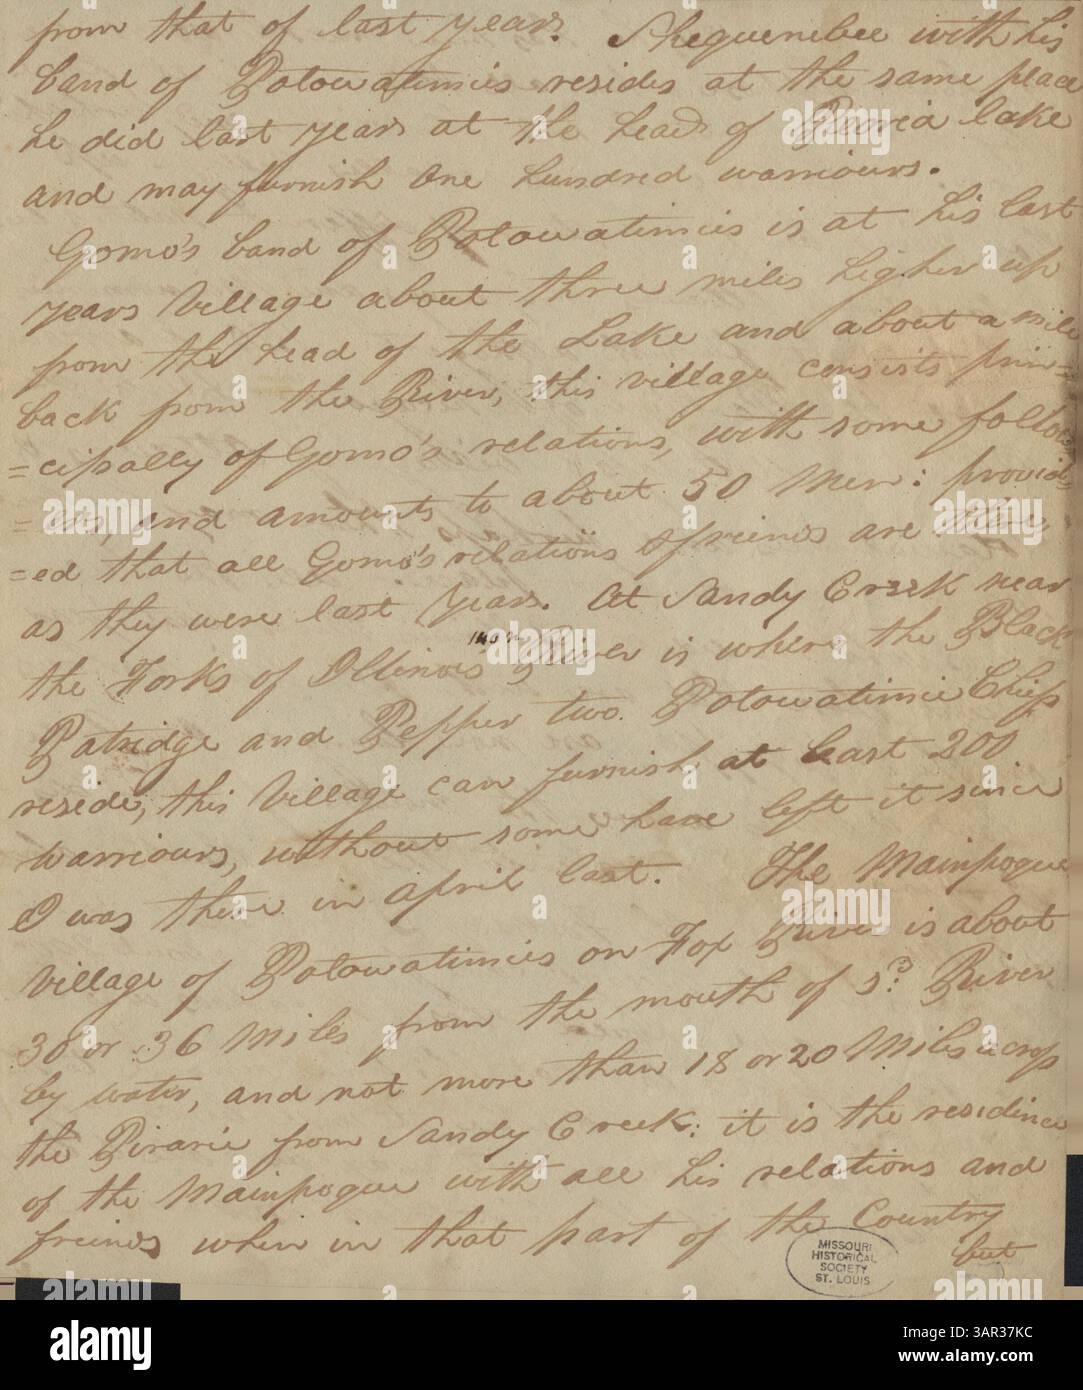 from that of last year. Shequenebec with his
band of Potowatimies resides at the same place
he did last year at the head of Pieoria lake
and may furnish One hundred warriours.
Gomo's band of Potowatimies is at his last
years Village about three miles higher up
from the head of the Lake and about a mile
back from the River, this village consists prin=
=cipally of Gomo's relations, with some follow
=ers, and amounts to about 50 Men: provid=
=ed that all Gomo's relations & freinds are there
as they were last Year. At Sandy Creek near
the Forks of Illinois River is where the Black
Patridge and Pepper two Potowatimie Chiefs
reside, this Village can furnish at least 200
warriours, without some have left it since
I was there in april last. The Mainpogue
Village of Potowatimies on Fox River is about
30 or 36 Miles from the mouth of sd. River
by water, and not more than 18 or 20 Miles acrop
the Pirarie from Sandy Creek: it is the residence
of the Mainpogue with all his relations and
freinds when in that part of the Country
but
MISSOURI
HISTORICAL
SOCIETY
ST. LOUIS
alamy
Image ID: 3AR37KC
www.alamy.com